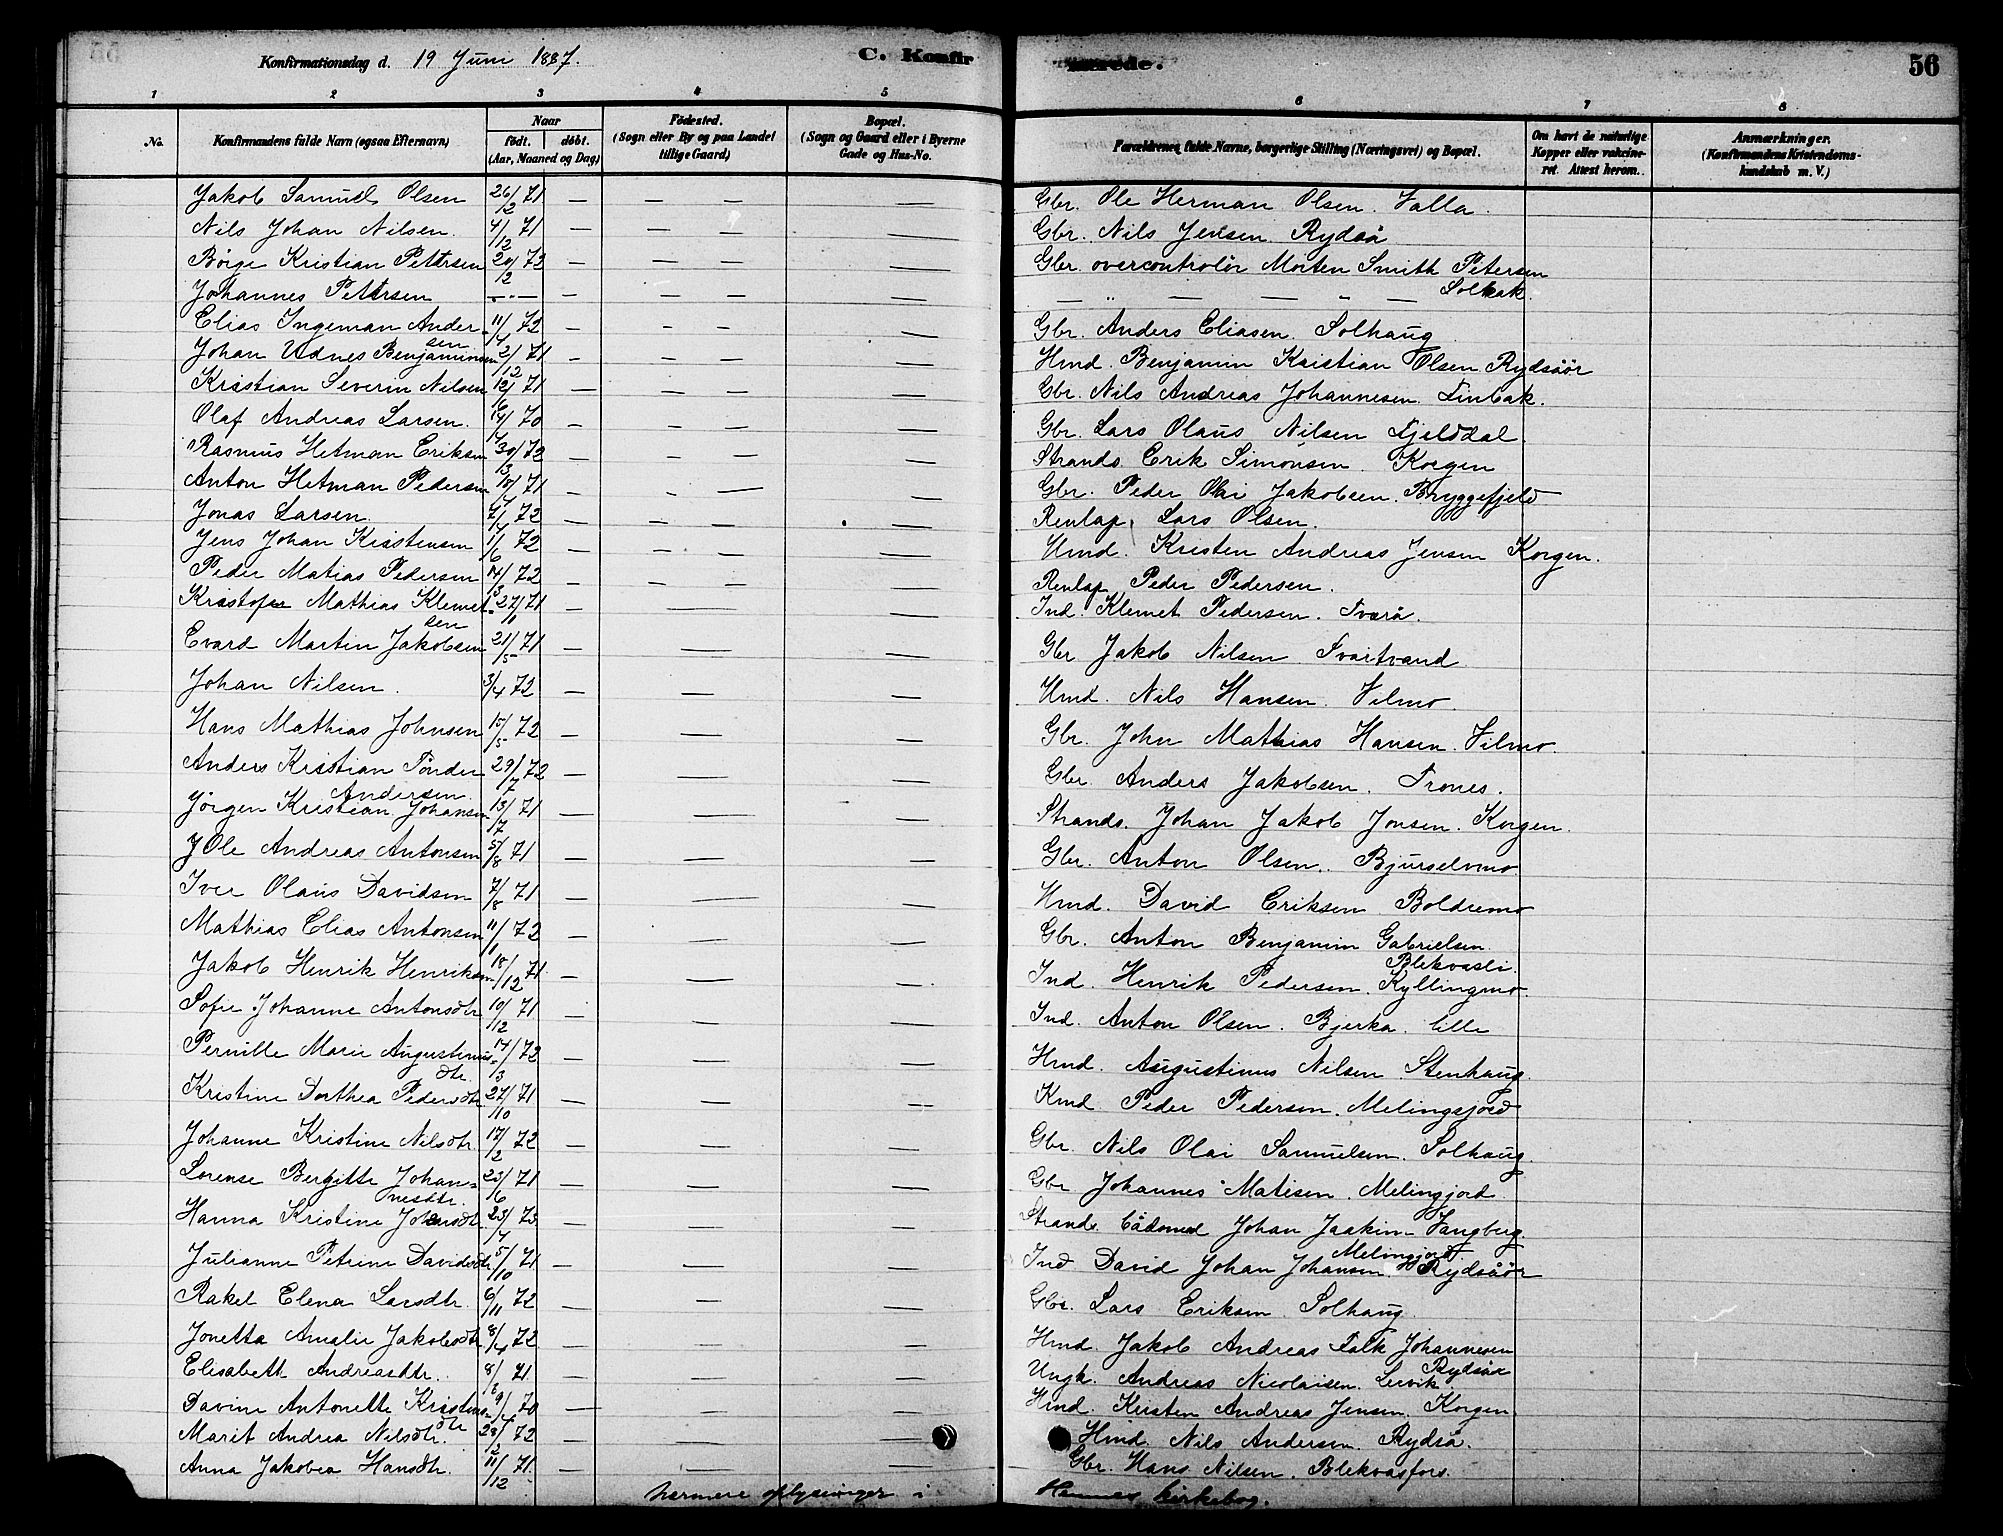 Konfirmationsdag d. 19 Juni 1887. C. Konfir merede. 56
1 2 3 4 5 6 7 8
No. Konfirmandens fulde Navn (ogsaa Efternavn) Naar født. døbt. (Aar, Maaned og Dag) Fødested. (Sogn eller By og paa Landet tillige Gaard) Bopæl. (Sogn og Gaard eller i Byerne Gade og Hus-No. Forældrenes fulde Navne, borgerlige Stilling (Næringsvei) og Bopæl. Om havt de naturlige Kopper eller vakcineret. Attest herom. Anmærkninger. (Konfirmandens Kristendomskundskab m. V.)
Jakob Samuel Olsen 26/12 71 — — — — Gbr. Ole Herman Olsen. Valla.
Nils Johan Nilsen. 4/12 71 — — — — Gbr. Nils Jensen Rydså
Börge Kristian Petersen 20/12 72 — — — — Gbr. overcontrolör Morten Smith Petersen
Johannes Petersen —"— — — — — — " — — " — Solbak.
Elias Ingeman Andersen 11/4 72 — — — — Gbr. Anders Eliasen Solhaug
Johan Udnes Benjaminsen 2/12 71 — — — — Hmd. Benjamin Kristian Olsen Rydsåör
Kristian Severin Nilsen 12/6 71 — — — — Gbr. Nils Andreas Johannesen. Finbak.
Olaf Andreas Larsen. 70 — — — — Gbr. Lars Olaus Nilsen Fjelddal.
Rasmus Hetman Eriksen 30/3 72 — — — — Strands. Erik Simonsen. Korgen
Anton Hetman Pedersen 10/7 71 — — — — Gbr. Peder Olai Jakobsen. Bryggefjeld
Jonas Larsen. 7/4 72 — — — — Renlap. Lars Olsen.
Jens Johan Kristensen 1/6 72 — — — — Hmd. Kristen Andreas Jensen Korgen.
Peder Matias Pedersen 14/3 72 — — — — Renlap Peder Pedersen.
Kristofer Mathias Klemetsen 27/1 71 — — — Ind. Klemet Pedersen. Tverå.
Evard Martin Jakobsen 21/5 71 — — — Gbr Jakob Nilsen Svartvand
Johan Nilsen. 3/4 72 — — — Hmd. Nils Hansen. Vilmo.
Hans Mathias Johnsen 15/5 72 — — — Gbr. John Mathias Hansen. Vilmo
Anders Kristian Tönder Andersen. 29/7 72 — — — Gbr Anders Jakobsen. Trones.
Jörgen Kristian Johansen 13/7 71 — — — Strands. Johan Jakob Jonsen. Korgen.
Ole Andreas Antonsen 5/8 71 — — — Gbr. Anton Olsen. Bjurselvmo
Iver Olaus Davidsen 7/8 71 — — — Hmd. David Eriksen Boldremo
Mathias Elias Antonsen 11/1 72 — — — Gbr. Anton Benjamin Gabrielsen. Blekvasli.
Jakob Henrik Henriksen 18/12 71. — — — Ind. Henrik Pedersen. Kyllingmo.
Sofie Johanne Antonsdtr 10/12 71 — — — Ind. Anton Olsen. Bjerka. lille
Pernille Marie Augustinusdtr. 14/3 72 — — — Hmd. Augustinus Nilsen Stenhaug.
Kristine Dorthea Pedersdtr 27/10 71 — — — Kmd Peder Pedersen. Melingsjord
Johanne Kristine Nilsdtr. 17/2 72 — — — Gbr. Nils Olai Samuelsen. Solhaug.
Lorense Bergitte Johannesdtr. 23/6 71 — — — Gbr Johannes Matisen. Melingjord
Hanna Kristine Johansdtr. 23/4 73 — — — Strands bådsmed Johan Joakim Vangberg. Melingjord
Julianne Petrine Davidsdtr. 5/10 71 — — — Ind David Johan Johansen. Rydsåör
Rakel Elena Larsdtr. 6/11 72 — — — Gbr. Lars Eriksen Solhaug.
Jonetta Amalie Jakobsdtr 8/4 72 — — — Hmd. Jakob Andreas Falk Johannesen Rydsåör
Elisabeth Andreasdtr. 8/ 71 — — — Ungk. Andreas Nicolaisen. Lervik.
Davine Antonette Kristensdtr 9/4 70 — — — Hmd. Kristen Andreas Jensen. Korgen.
Marit Andrea Nilsdtr. 28/2 72 — — — Hmd. Nils Andersen. Rydså.
Anna Jakobea Hansdtr. 11/12 71. — — — Gbr. Hans Nilsen. Blekvasfors.
nærmere oplysninger i Hemnes kirkebog.